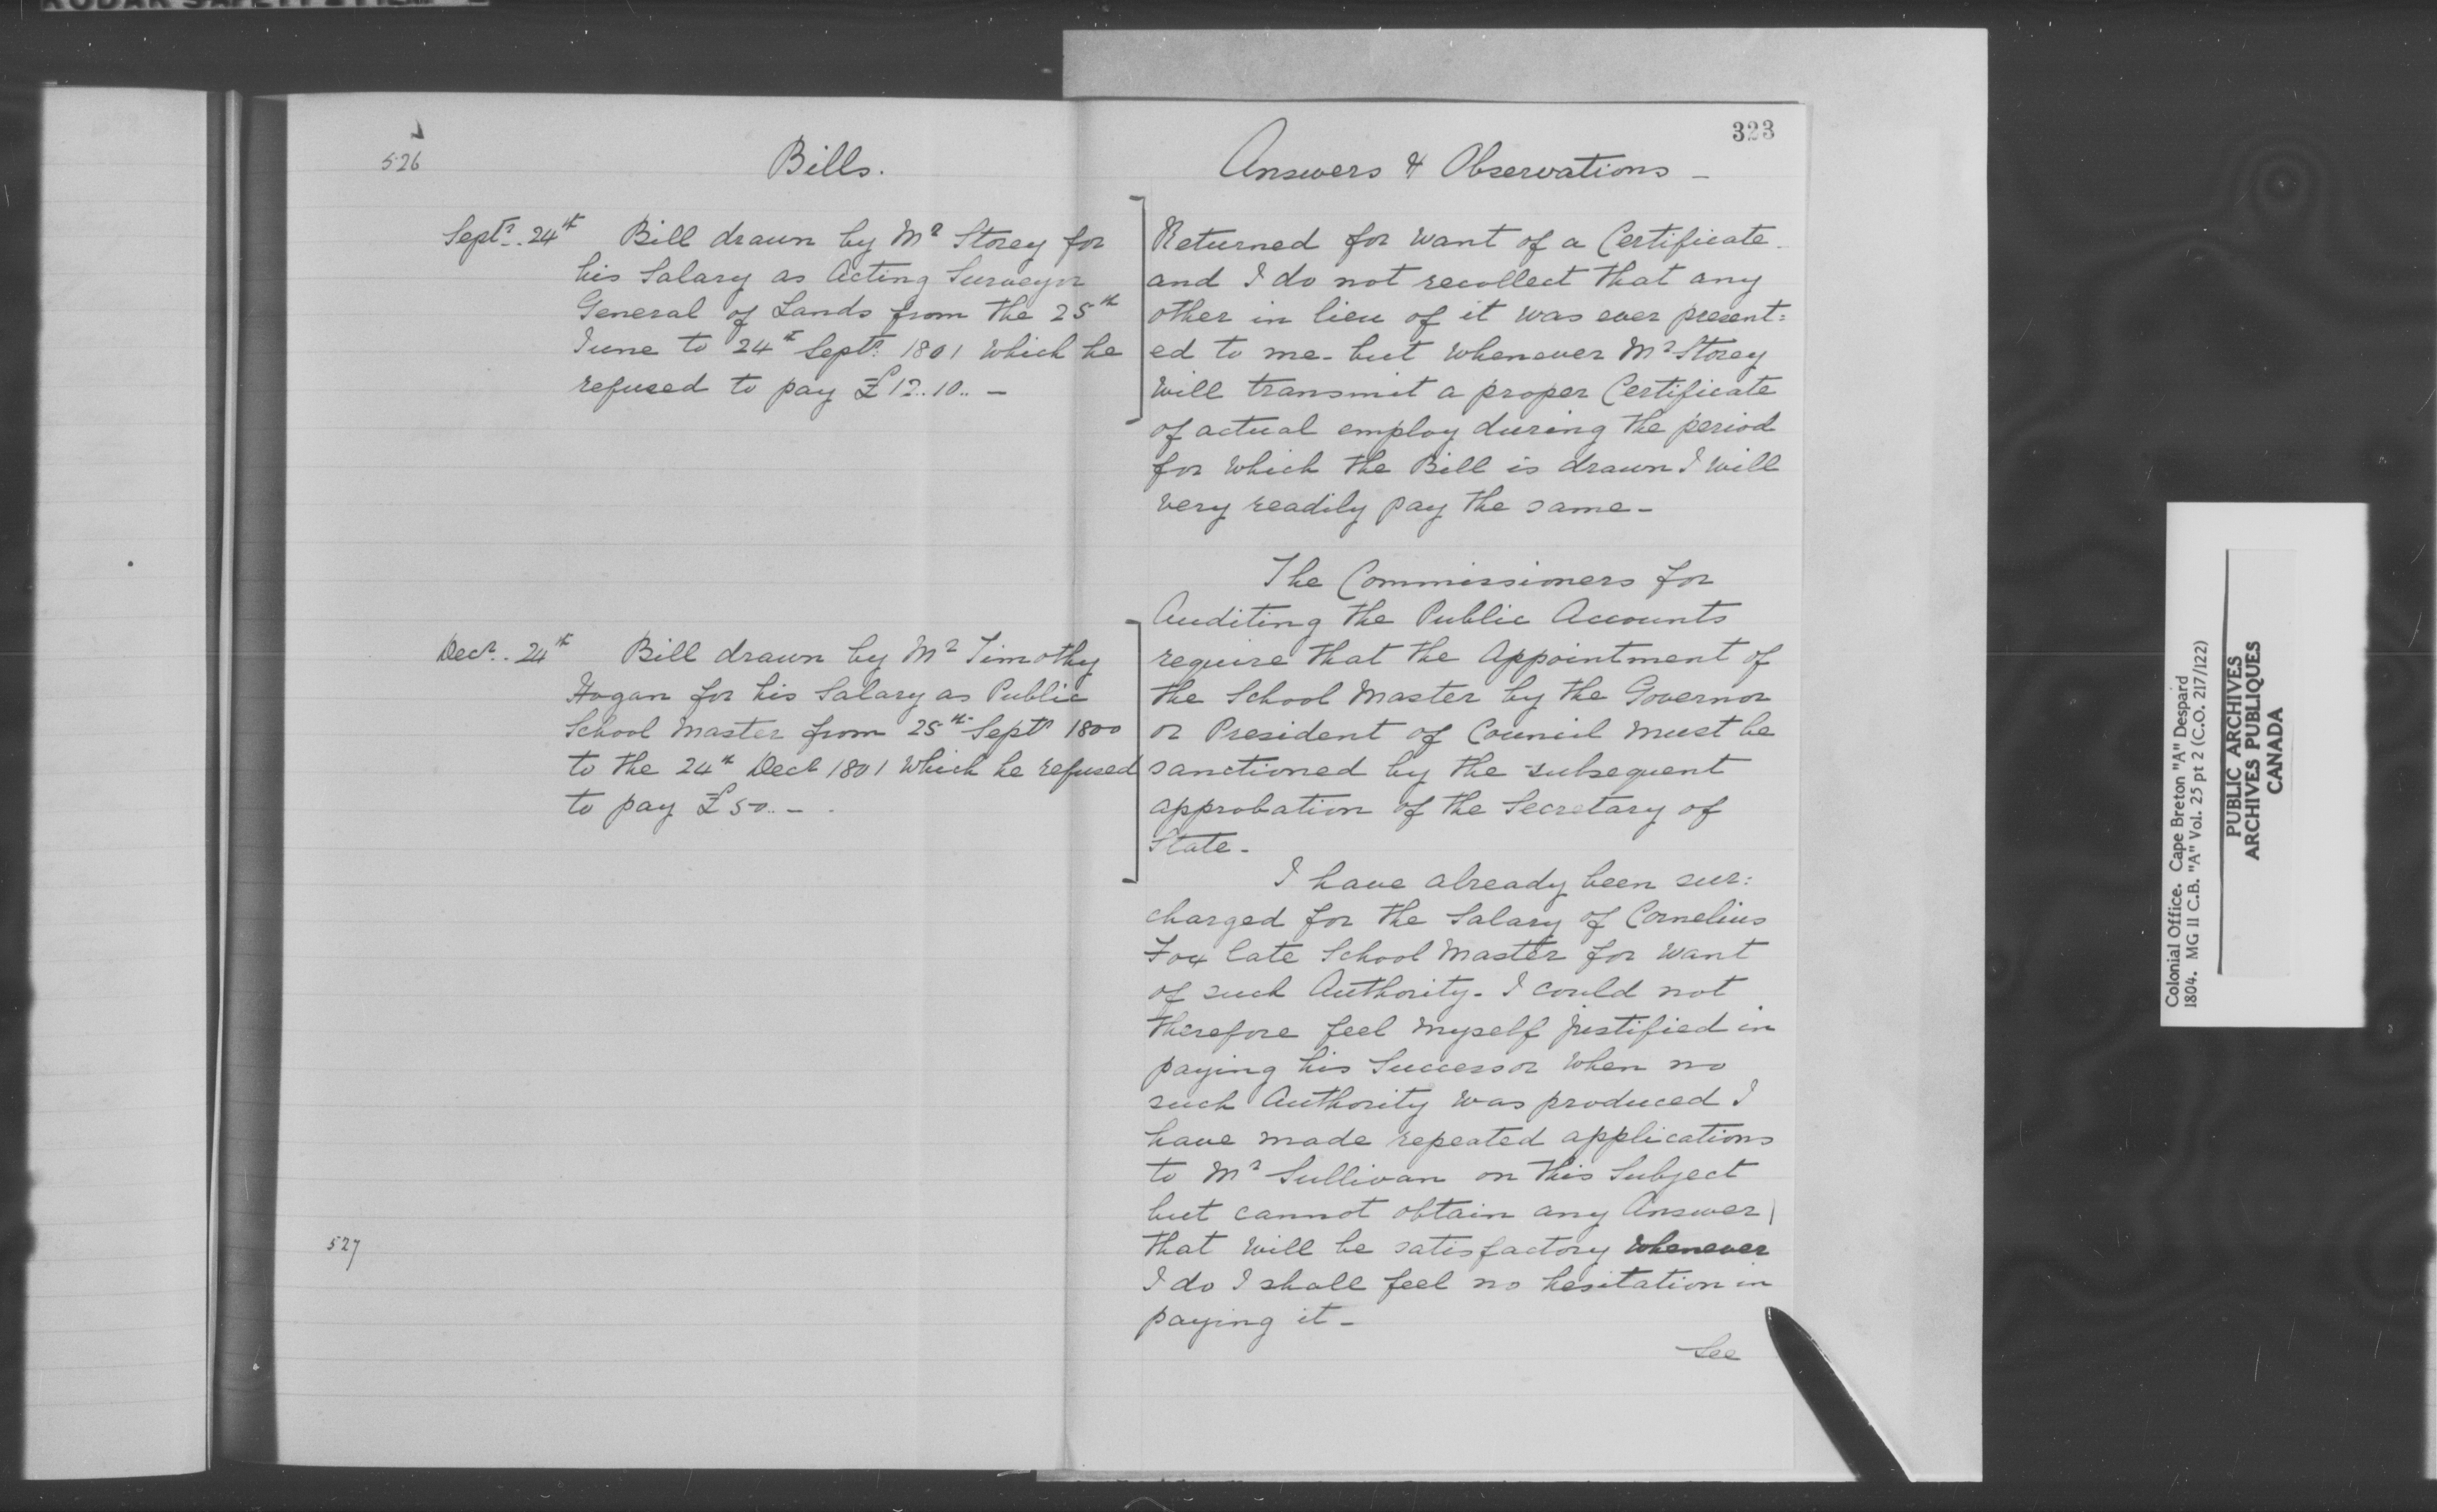 526
Bills.
Septr. 24th Bill drawn by Mr Storey for
his Salary as Acting Surveyor
General of Lands from the 25th
June to 24th Septr. 1801 which he
refused to pay £12..10.. -
Decr. 24th Bill drawn by Mr Timothy
Hogan for his Salary as Public
School Master from 25th Septr 1800
to the 24th Decr 1801 which he refused
to pay £50.. -
527
323
Answers & Observations -
Returned for want of a Certificate
and I do not recollect that any
other in lieu of it was ever present=
ed to me - but whenever Mr Storey
will transmit a proper Certificate
of actual employ during the period
for which the Bill is drawn I will
very readily pay the same -
The Commissioners for
Auditing the Public Accounts
require that the Appointment of
the School Master by the Governor
or President of Council must be
sanctioned by the subsequent
approbation of the Secretary of
State -
I have already been sur:
charged for the Salary of Cornelius
Fox late School Master for want
of such Authority - I could not
therefore feel myself justified in
paying his Successor when no
such Authority was produced I
have made repeated applications
to Mr Sullivan on this Subject
but cannot obtain any Answer
that will be satisfactory whenever
I do I shall feel no hesitation in
paying it -
See
Colonial Office. Cape Breton "A" Despard
1804. MG 11 C.B. "A" Vol. 25 pt 2 (C.O. 217/122)
PUBLIC ARCHIVES
ARCHIVES PUBLIQUES
CANADA